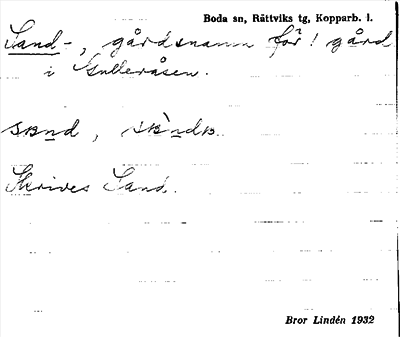 Boda sn, Rättviks tg, Kopparb. l.
Sand-, gårdsnamn för 1 gård
i Gulleråsen.
Skrives Sand.
Bror Lindén 1932